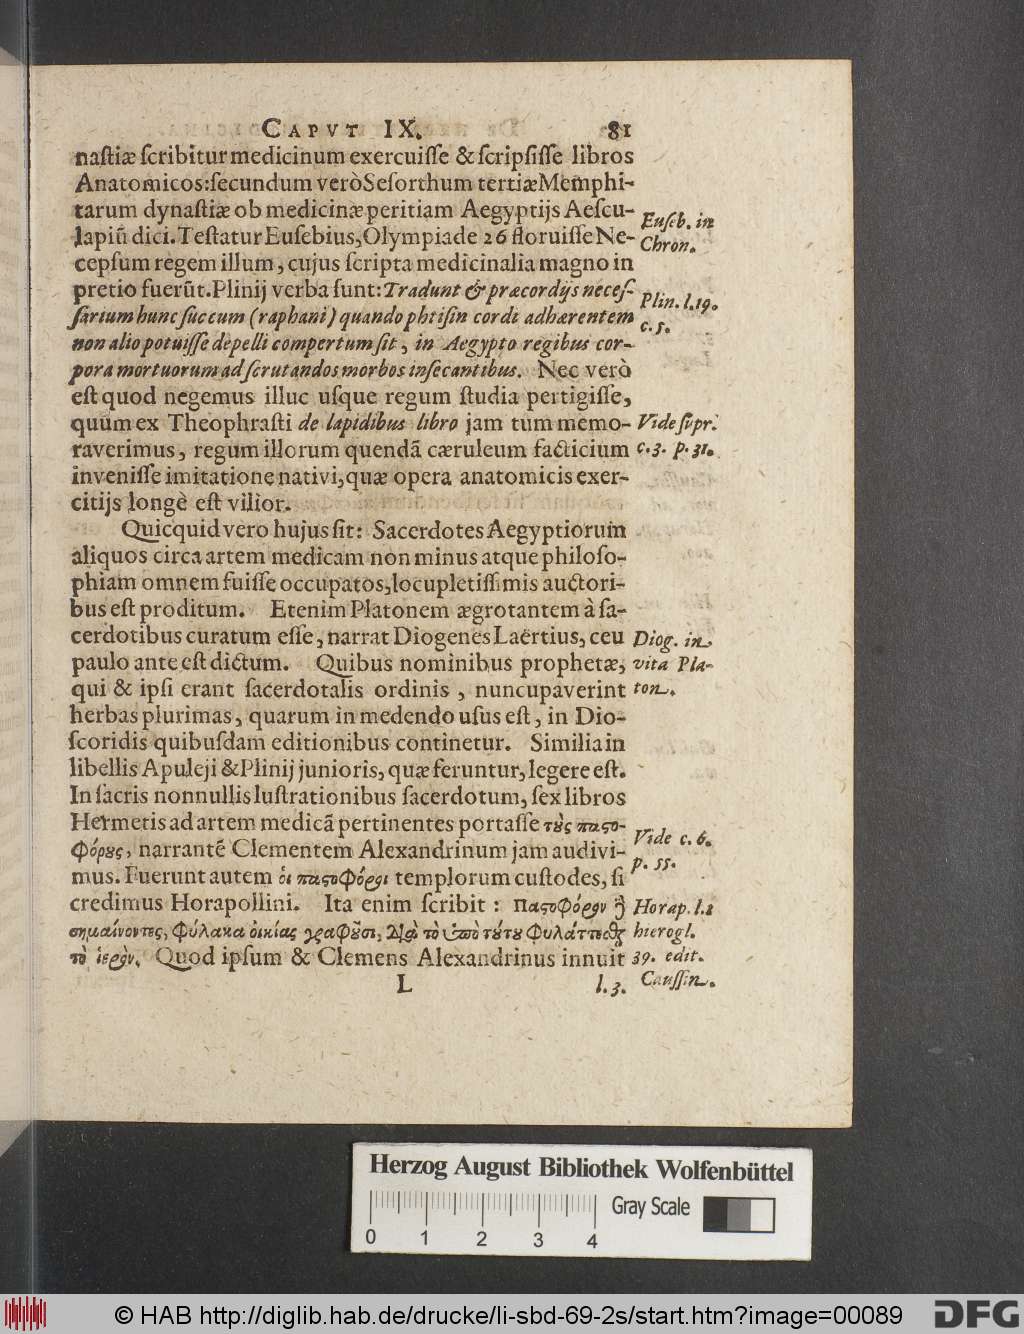 CAPVT IX. 81
naſtiæ ſcribitur medicinum exercuiſſe & ſcripſiſſe libros
Anatomicos: ſecundum verò Seſorthum tertiæ Memphi-
tarum dynaſtiæ ob medicinæ peritiam Aegyptijs Aeſcu-
lapiũ dici. Teſtatur Euſebius, Olympiade 26 floruiſſe Ne-
Euſeb. in
Chron.
cepſum regem illum, cujus ſcripta medicinalia magno in
pretio fuerũt. Plinij verba ſunt: Tradunt & præcordijs neceſ-
Plin. l. 19.
c. 5.
ſarium hunc ſuccum (raphani) quando phtiſin cordi adhærentem
non alio potuiſſe depelli compertum ſit, in Aegypto regibus cor-
pora mortuorum ad ſcrutandos morbos inſecantibus. Nec verò
eſt quod negemus illuc uſque regum ſtudia pertigiſſe,
quùm ex Theophraſti de lapidibus libro jam tum memo-
Vide ſupr.
c. 3. p. 31.
raverimus, regum illorum quendã cæruleum facticium
inveniſſe imitatione nativi, quæ opera anatomicis exer-
citijs longè eſt vilior.
Quicquid vero hujus ſit: Sacerdotes Aegyptiorum
aliquos circa artem medicam non minus atque philoſo-
phiam omnem fuiſſe occupatos, locupletiſſimis auctori-
bus eſt proditum. Etenim Platonem ægrotantem à ſa-
cerdotibus curatum eſſe, narrat Diogenes Laërtius, ceu
Diog. in
vita Pla-
ton.
paulo ante eſt dictum. Quibus nominibus prophetæ,
qui & ipſi erant ſacerdotalis ordinis, nuncupaverint
herbas plurimas, quarum in medendo uſus eſt, in Dio-
ſcoridis quibuſdam editionibus continetur. Similia in
libellis Apuleji & Plinij junioris, quæ feruntur, legere eſt.
In ſacris nonnullis luſtrationibus ſacerdotum, ſex libros
Hermetis ad artem medicã pertinentes portaſſe τȣ̀ς παϛο-
Vide c. 6.
p. 55.
φόρȣς, narrantẽ Clementem Alexandrinum jam audivi-
mus. Fuerunt autem οἱ παϛοφόροι templorum cuſtodes, ſi
credimus Horapollini. Ita enim ſcribit: Παϛοφόρον ἢ
Horap. l. 1
hierogl.
39. edit.
Cauſſin.
σημαίνοντες, φύλακα οἰκίας γραφȣ͂σι, Διὰ τὸ ὑπὸ τȣ́τȣ φυλάττεσθ
τὸ ἱερόν. Quod ipſum & Clemens Alexandrinus innuit
L l. 3.
Herzog August Bibliothek Wolfenbüttel
Gray Scale
0 1 2 3 4
© HAB http://diglib.hab.de/drucke/li-sbd-69-2s/start.htm?image=00089
DFG